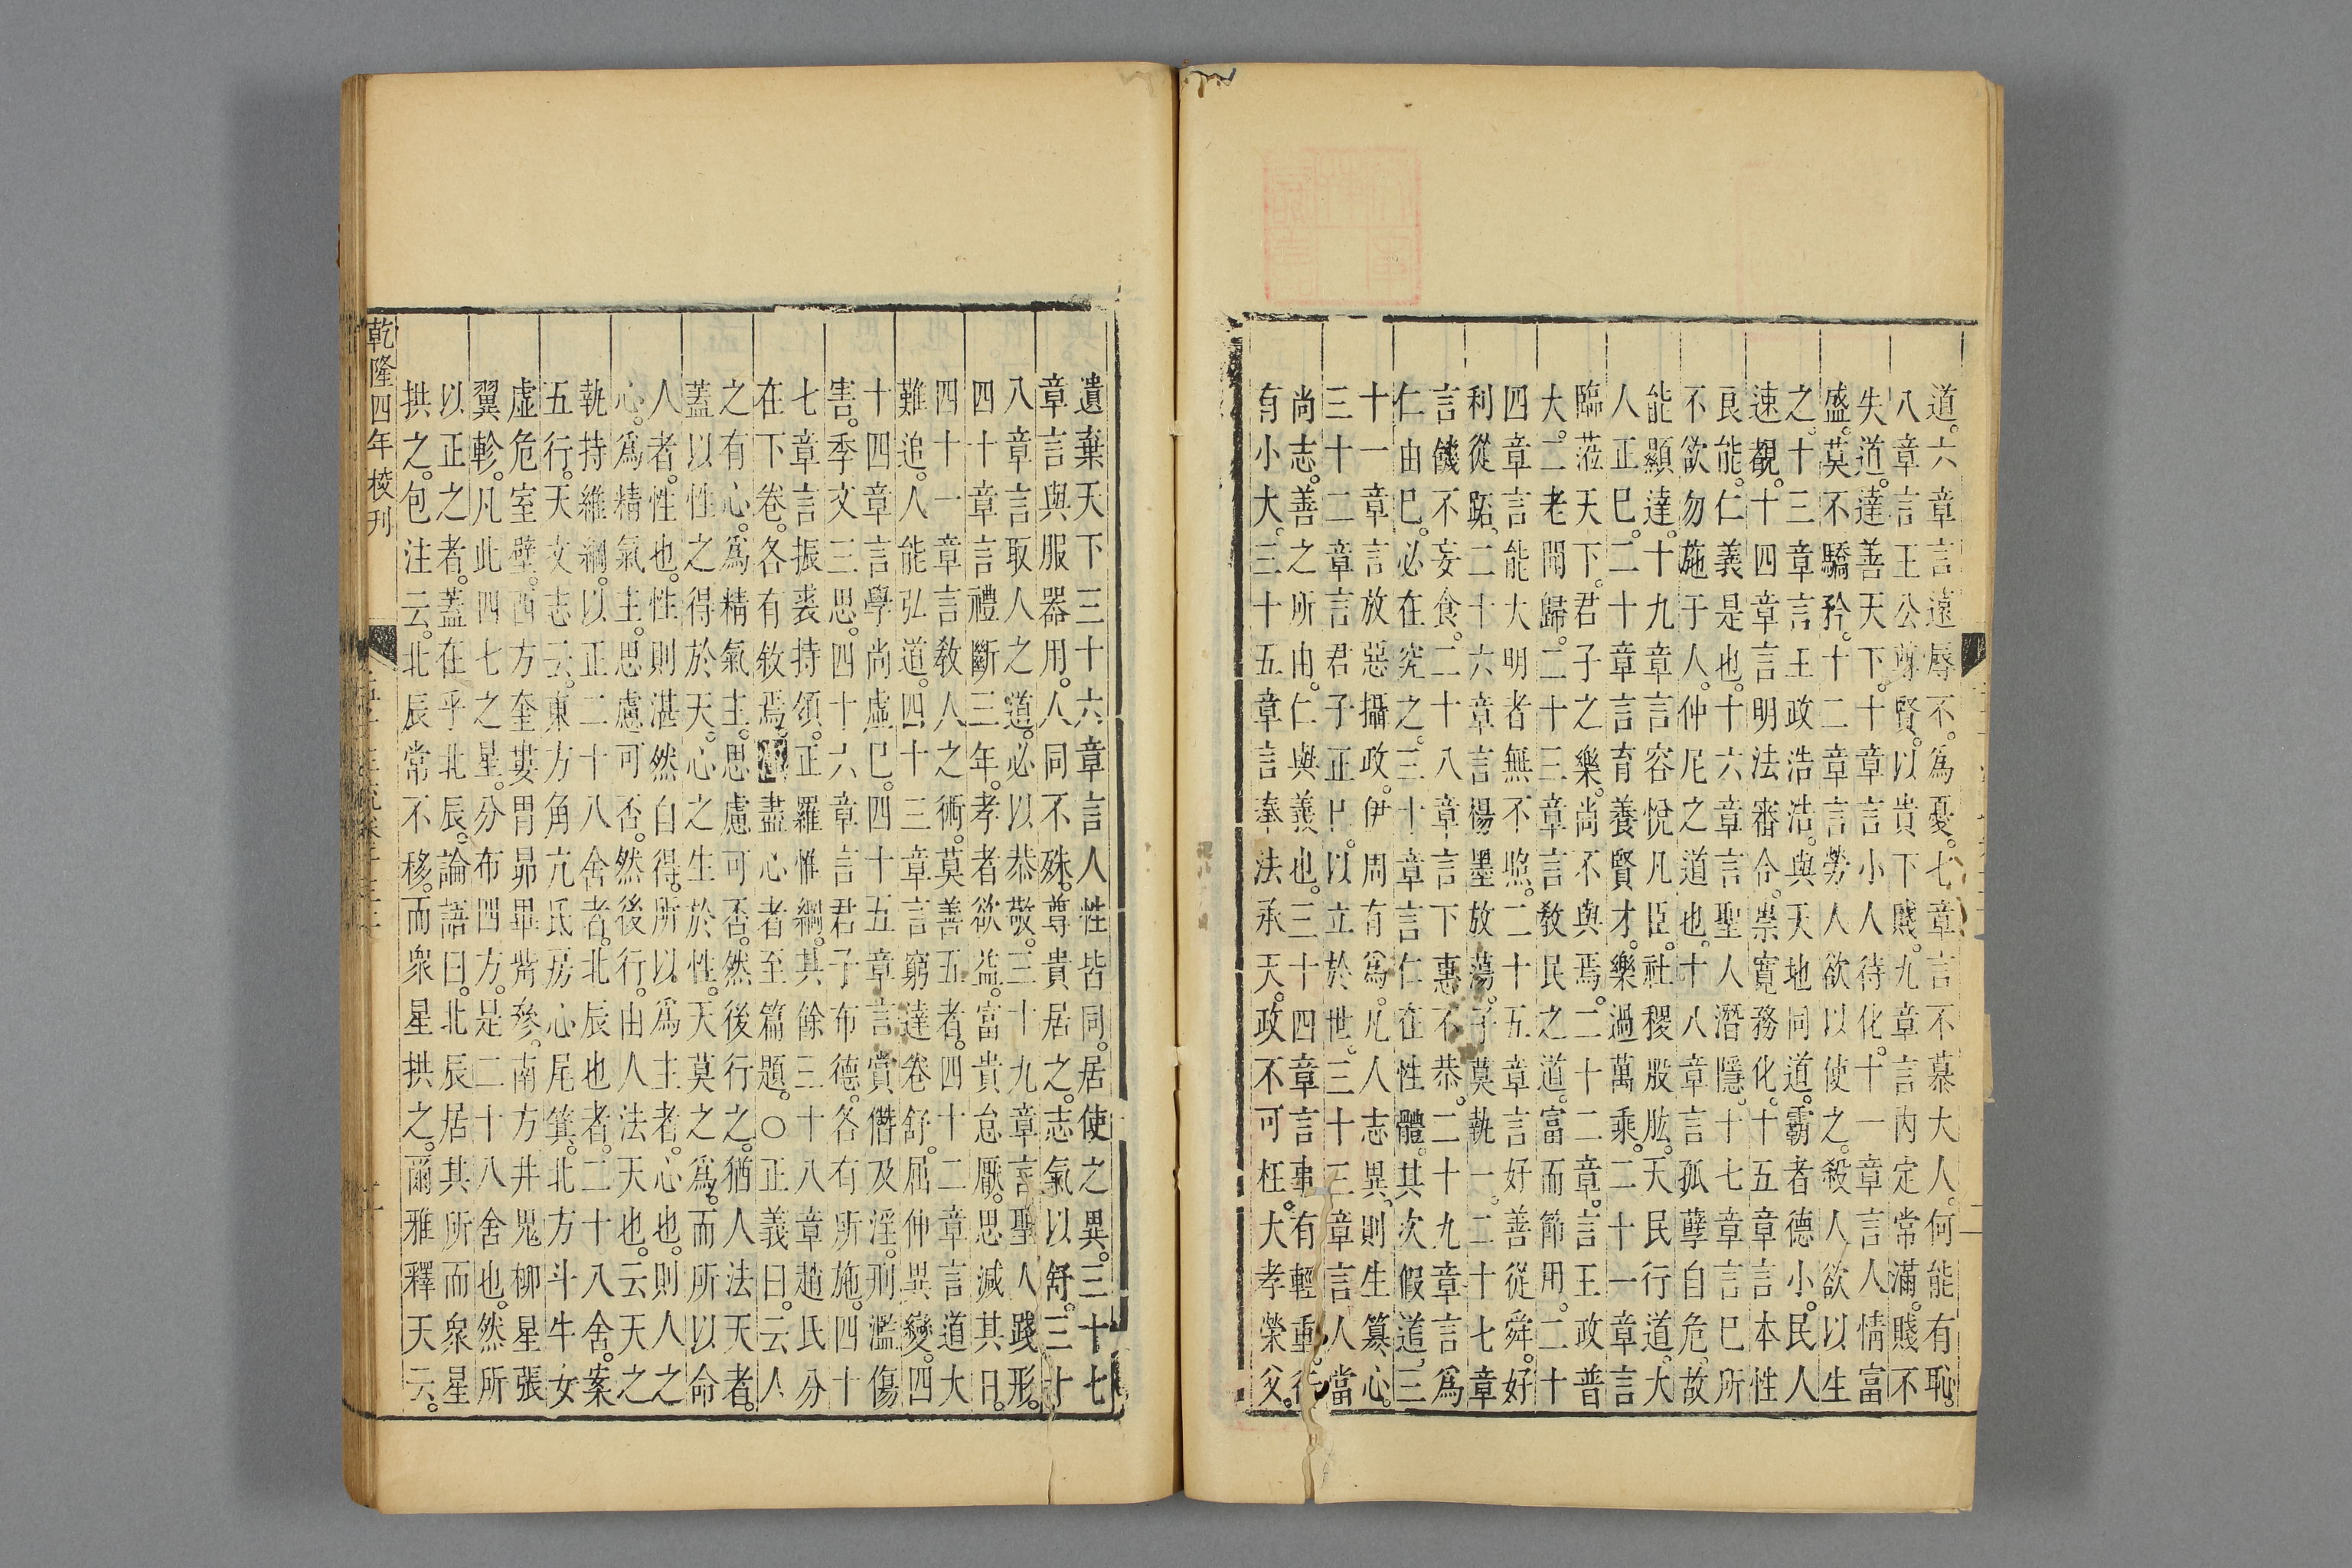 道。六章言遠辱不爲憂。七章言不慕大人。何能有恥。
八章言王公尊賢。以貴下賤。九章言內定常滿。賤不
失道。達善天下。十章言小人待化。十一章言人情富
盛。莫不驕矜。十二章言勞人欲以使之。殺人欲以生
之。十三章言王政浩浩。與天地同道。霸者德小。民人
速覩。十四章言明法審令。崇寬務化。十五章言本性
良能。仁義是也。十六章言聖人潛隱。十七章言已所
不欲勿施于人。仲尼之道也。十八章言孤孽自危。故
能顯達。十九章言容悅凡臣。社稷股肱。天民行道。大
人正已。二十章言育養賢才。樂過萬乘。二十一章言
臨莅天下。君子之樂。尚不與焉。二十二章。言王政普
大。二老聞歸。二十三章言敎民之道。富而節用。二十
四章言能大明者無不照。二十五章言好善從舜。好
利從跖。二十六章言楊墨放蕩。子莫執一。二十七章
言饑不妄食。二十八章言下惠不恭。二十九章言爲
仁由巳。必在究之。三十章言仁在性體。其次假道。三
十一章言放惡攝政。伊周有爲。凡人志異。則生篡心。
三十二章言君子正巳。以立於世。三十三章言人當
尚志。善之所由。仁與義也。三十四章言事。有輕重。行
有小大。三十五章言奉法承天。政不可枉。大孝榮父。
遺棄天下三十六章言人性皆同。居使之異。三十七
章言與服器用。人同不殊。尊貴居之。志氣以舒。三十
八章言取人之道。必以恭敬。三十九章言聖人踐形。
四十章言禮斷三年。孝者欲益。富貴怠厭。思減其日。
四十一章言敎人之術。莫善五者。四十二章言道大
難追。人能弘道。四十三章言窮達卷舒。屈伸異變。四
十四章言學尚虛巳。四十五章言賞僭及淫。刑濫傷
害。季文三思。四十六章言君子布德。各有所施。四十
七章言振裘持領。正羅惟綱。其餘三十八章趙氏分
在下卷。各有敘焉。盡心者至篇題。○正義曰。云人
之有心。爲精氣主。思慮可否。然後行之。猶人法天者。
蓋以性之得於天。心之生於性。天莫之爲。而所以命
人者。性也。性則湛然自得。所以爲主者。心也。則人之
心。爲精氣主。思慮可否。然後行。由人法天也。云天之
執持維綱。以正二十八舍者。北辰也者。二十八舍。案
五行。天文志云。東方角亢氐房心尾箕。北方斗牛女
虛危室壁。西方奎婁胃昴畢觜參。南方井鬼柳星張
翼軫。凡此四七之星。分布四方。是二十八舍也。然所
以正之者。蓋在乎北辰。論語曰。北辰居其所而衆星
拱之。包注云。北辰常不移。而衆星拱之。爾雅釋天云。
乾隆四年校刊